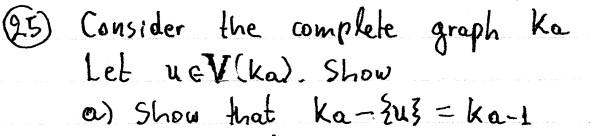 25) Consider the complete graph Ka
Let u∈V(Ka). Show
a) Show that Ka-{u} = Ka-1